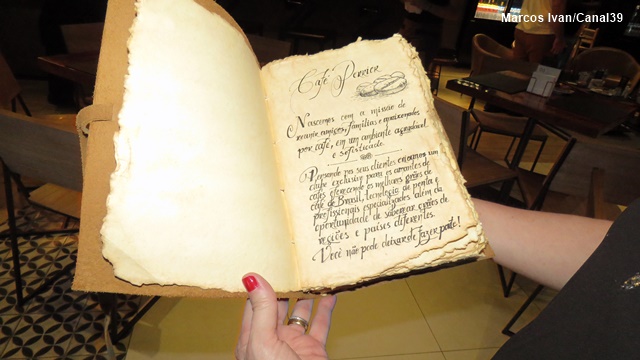 Marcos Ivan/Canal39
Café Perrier
Nascemos com a missão de
reunir amigos, famílias e apaixonados
por café, em um ambiente agradável
e sofisticado.
Pensando nos seus clientes criamos um
clube exclusivo para os amantes de
cafés oferecendo os melhores grãos de
café do Brasil, tecnologia de ponta e
profissionais especializados além da
oportunidade de saborear grãos de
regiões e países diferentes.
Você não pode deixar de fazer parte!